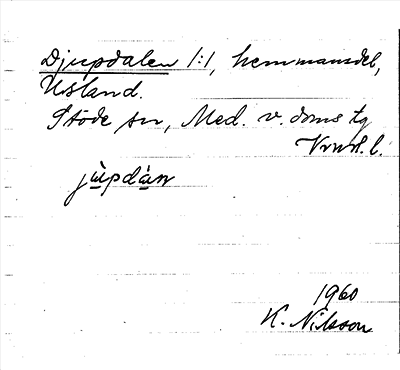 Djupdalen 1:1, hemmansdel,
Usland.
Stöde sn, Med. v. doms tg
Vrnl. l.
jùpdàn
1960
K. Nilsson